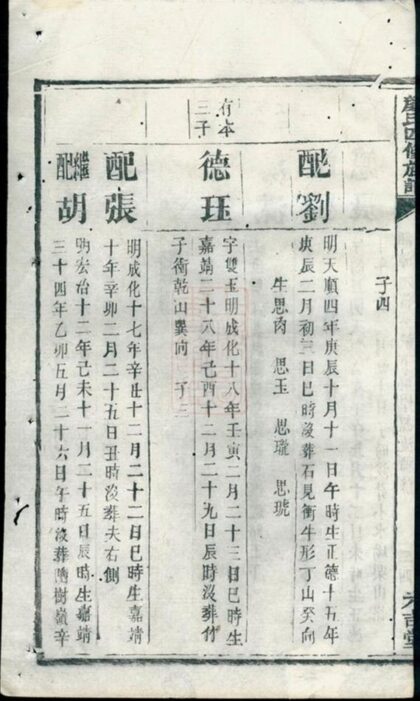 子四
配劉
明天順四年庚辰十月十一日午時生正德十五年
庚辰二月初三日巳時沒葬石見衝牛形丁山癸向
生思禸 思玉 思瓏 思琥
有本
三子
德珏
字雙玉明成化十八年壬寅二月二十三日巳時生
嘉靖二十八年己酉十二月二十九日辰時沒葬竹
子衝乾山巽向 子三
配張
明成化十七年辛丑十二月二十二日巳時生嘉靖
十年辛卯二月二十五日丑時沒葬夫右側
繼配胡
明宏治十二年己未十一月二十五日辰時生嘉靖
三十四年乙卯五月二十六日午時沒葬樹嶺辛